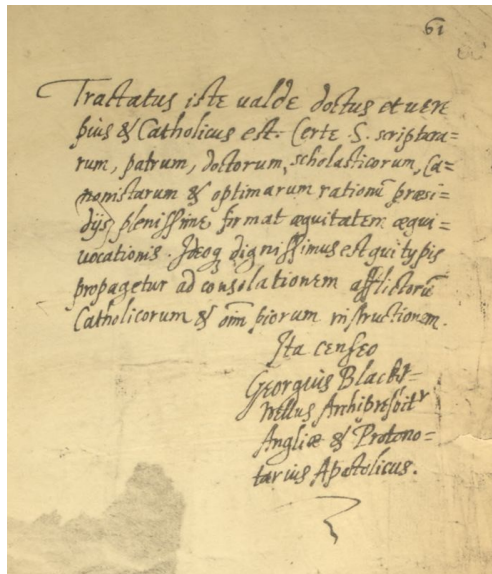 61
Tractatus iste ualde doctus et uere
pius & Catholicus est. Certe S. scriptura=
rum, patrum, doctorum, scholasticorum, Ca=
nonistarum & optimarum rationũ præsi=
dijs plenissime firmat æquitatem æqui=
uocationis. Ideoq dignissimus est qui typis
propagetur ad consolationem afflictorũ
Catholicorum & oĩm piorum instructionem.
Ita censeo
Georgius Black=
wellus Archipresbiter
Angliæ & Protono=
tarius Apostolicus.